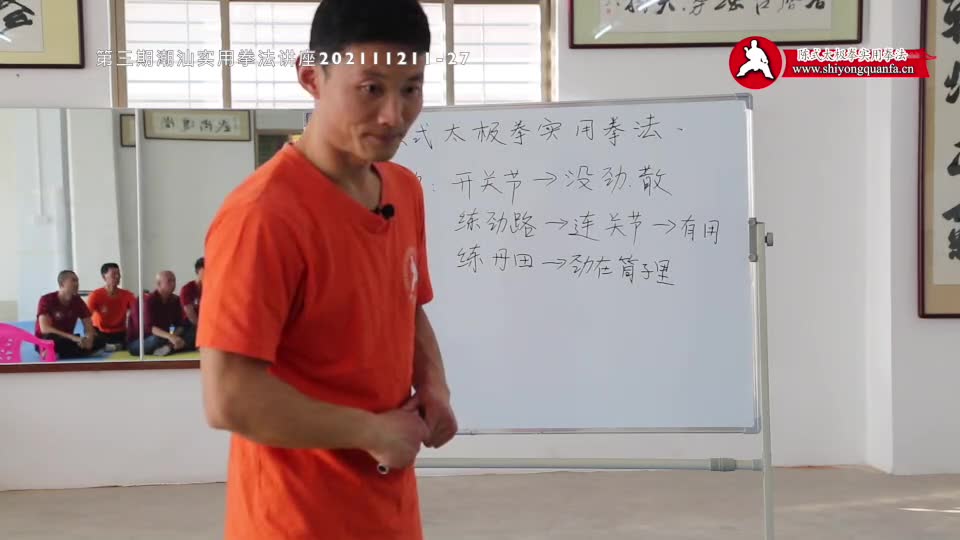 第三期潮汕实用拳法讲座202111211-27
陈式太极拳实用拳法
www.shiyongquanfa.cn
式太极拳实用拳法.
: 开关节→没劲.散
练劲路→连关节→有用
练丹田→劲在筒子里